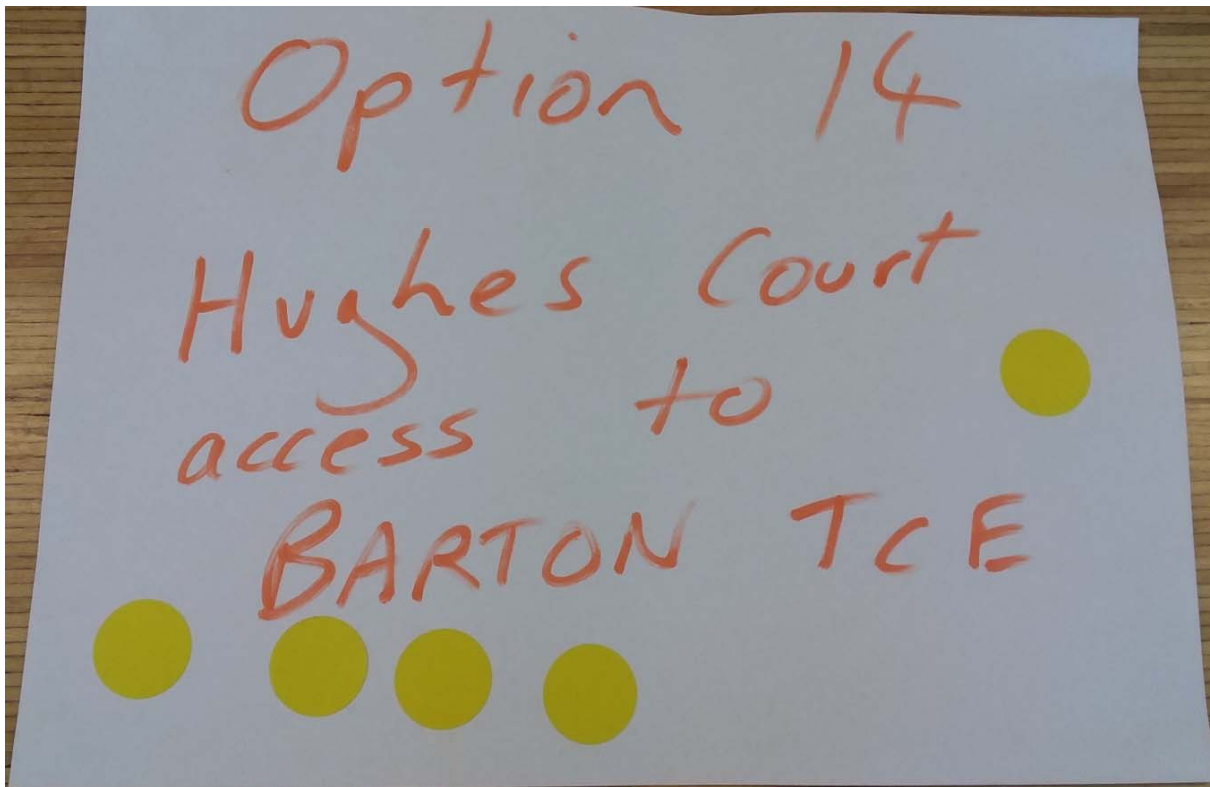 Option 14
Hughes Court
access to
BARTON TCE